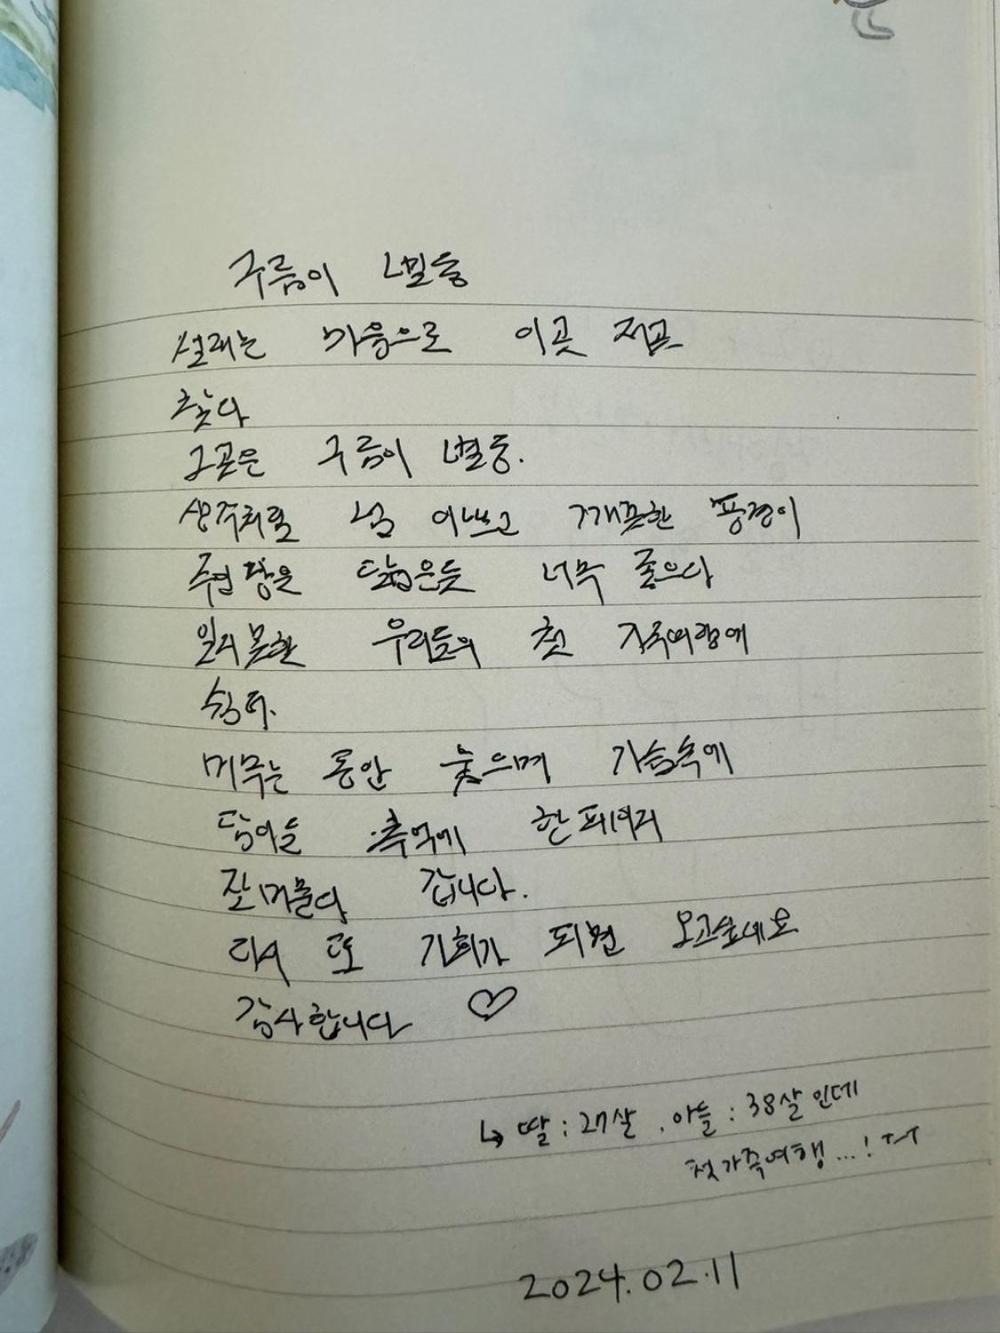 구름이 내민들
설레는 마음으로 이곳 저곳
찾다
그곳은 구름이
생각처럼 넘 이쁘고 깨끗한 풍경이
닮은듯 너무 좋으다
우리들의 첫 가족여행에
쉼터.
머무는 동안 웃으며 가슴속에
담아둘 추억에 한 페이지
잘 머물다 갑니다.
다시 또 기회가 되면 오고싶네요
감사합니다 ♡
↳ 딸 : 27살 . 아들 : 38살인데
첫가족여행 ...! ㅜㅜ
2024.02.11